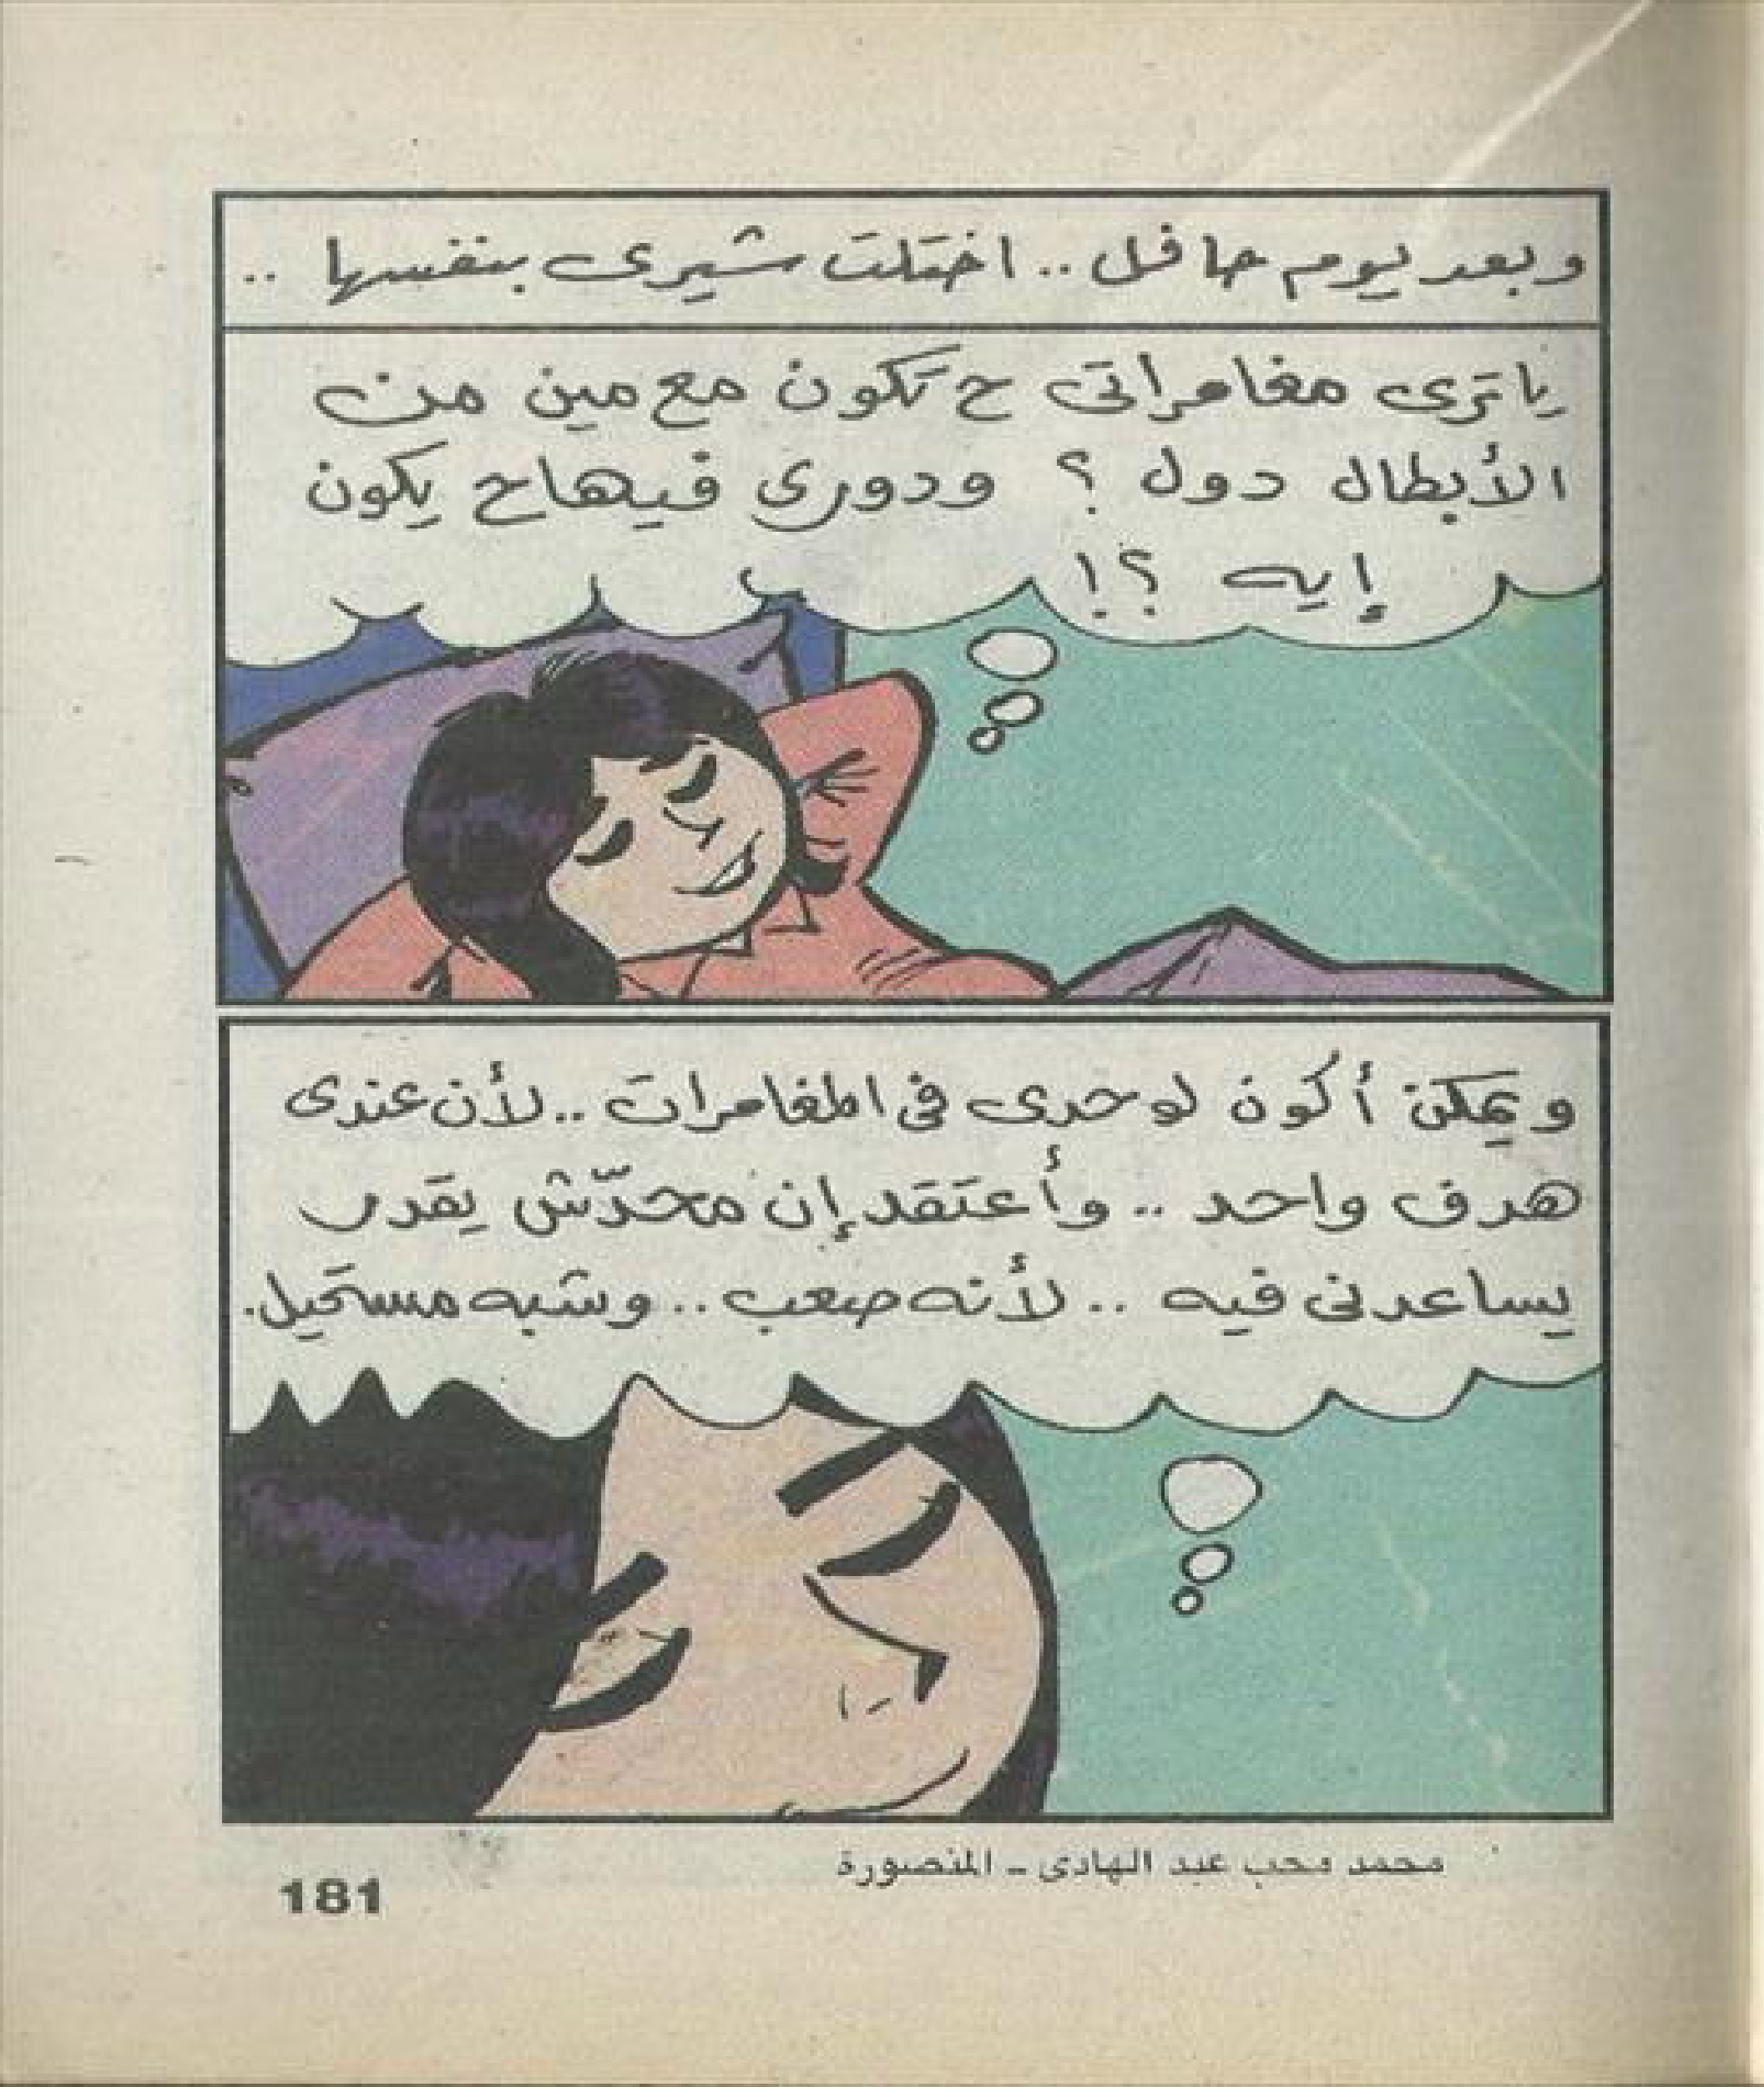 وبعد يوم حافل .. اختلت شيرى بنفسها ..
ياترى مغامراتى ح تكون مع مين من
الأبطال دول ؟ ودورى فيها ح يكون
إيه ؟!
ويمكن أكون لوحدى فى المغامرات .. لأن عندى
هدف واحد .. وأعتقد إن محدّش يقدر
يساعدنى فيه .. لأنه صعب .. وشبه مستحيل.
محمد محب عبد الهادى - المنصورة
181